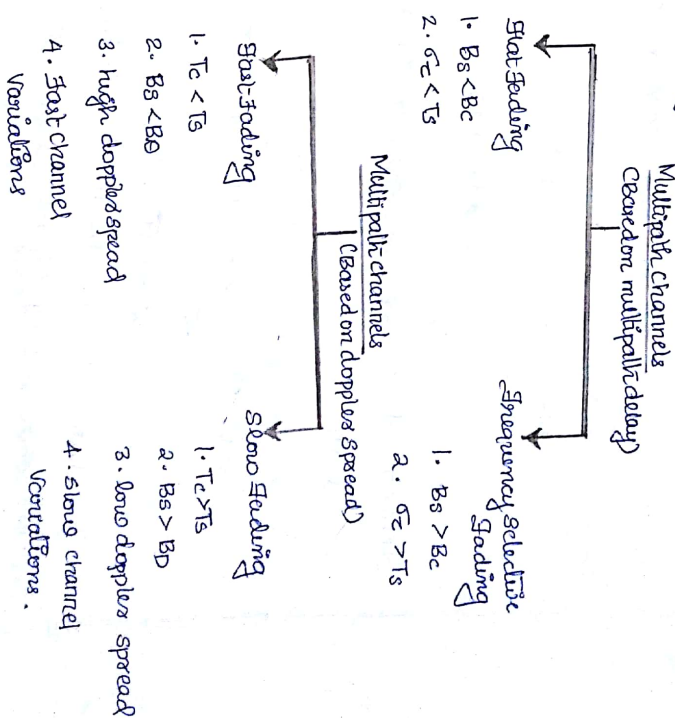 Multipath channels
(Based on multipath delay)
Flat Fading
1. Bs < Bc
2. στ < Ts
Frequency selective
Fading
1. Bs > Bc
2. στ > Ts
Multipath channels
(Based on doppler spread)
Fast Fading
1. Tc < Ts
2. Bs < BD
3. high doppler spead
4. Fast channel
variations
Slow Fading
1. Tc > Ts
2. Bs > BD
3. low doppler spread
4. slow channel
variations.